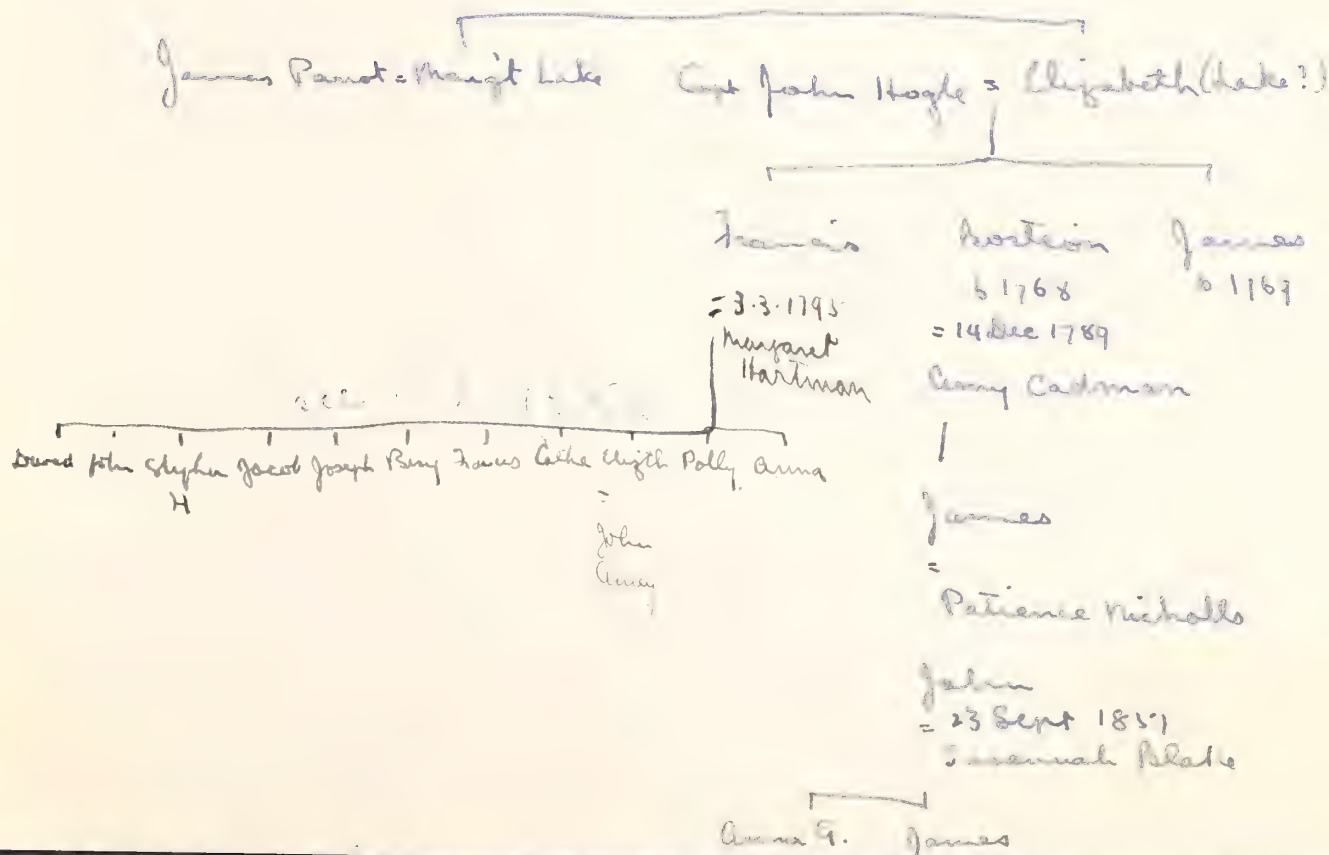 James Parrot = Marg't Lake Capt John Hogle = Elizabeth (Lake?)
Francis Bostion James
b 1768 b 1769
= 3.3.1795
= 14 Dec 1789
Margaret
Hartman
Amy Cadman
David John Stephen Jacob Joseph Benj Francis Cathe Elizth Polly Anna
H
=
John
Amey
James
=
Patience Nicholls
John
= 23 Sept 1857
Susannah Blake
Anna G. James